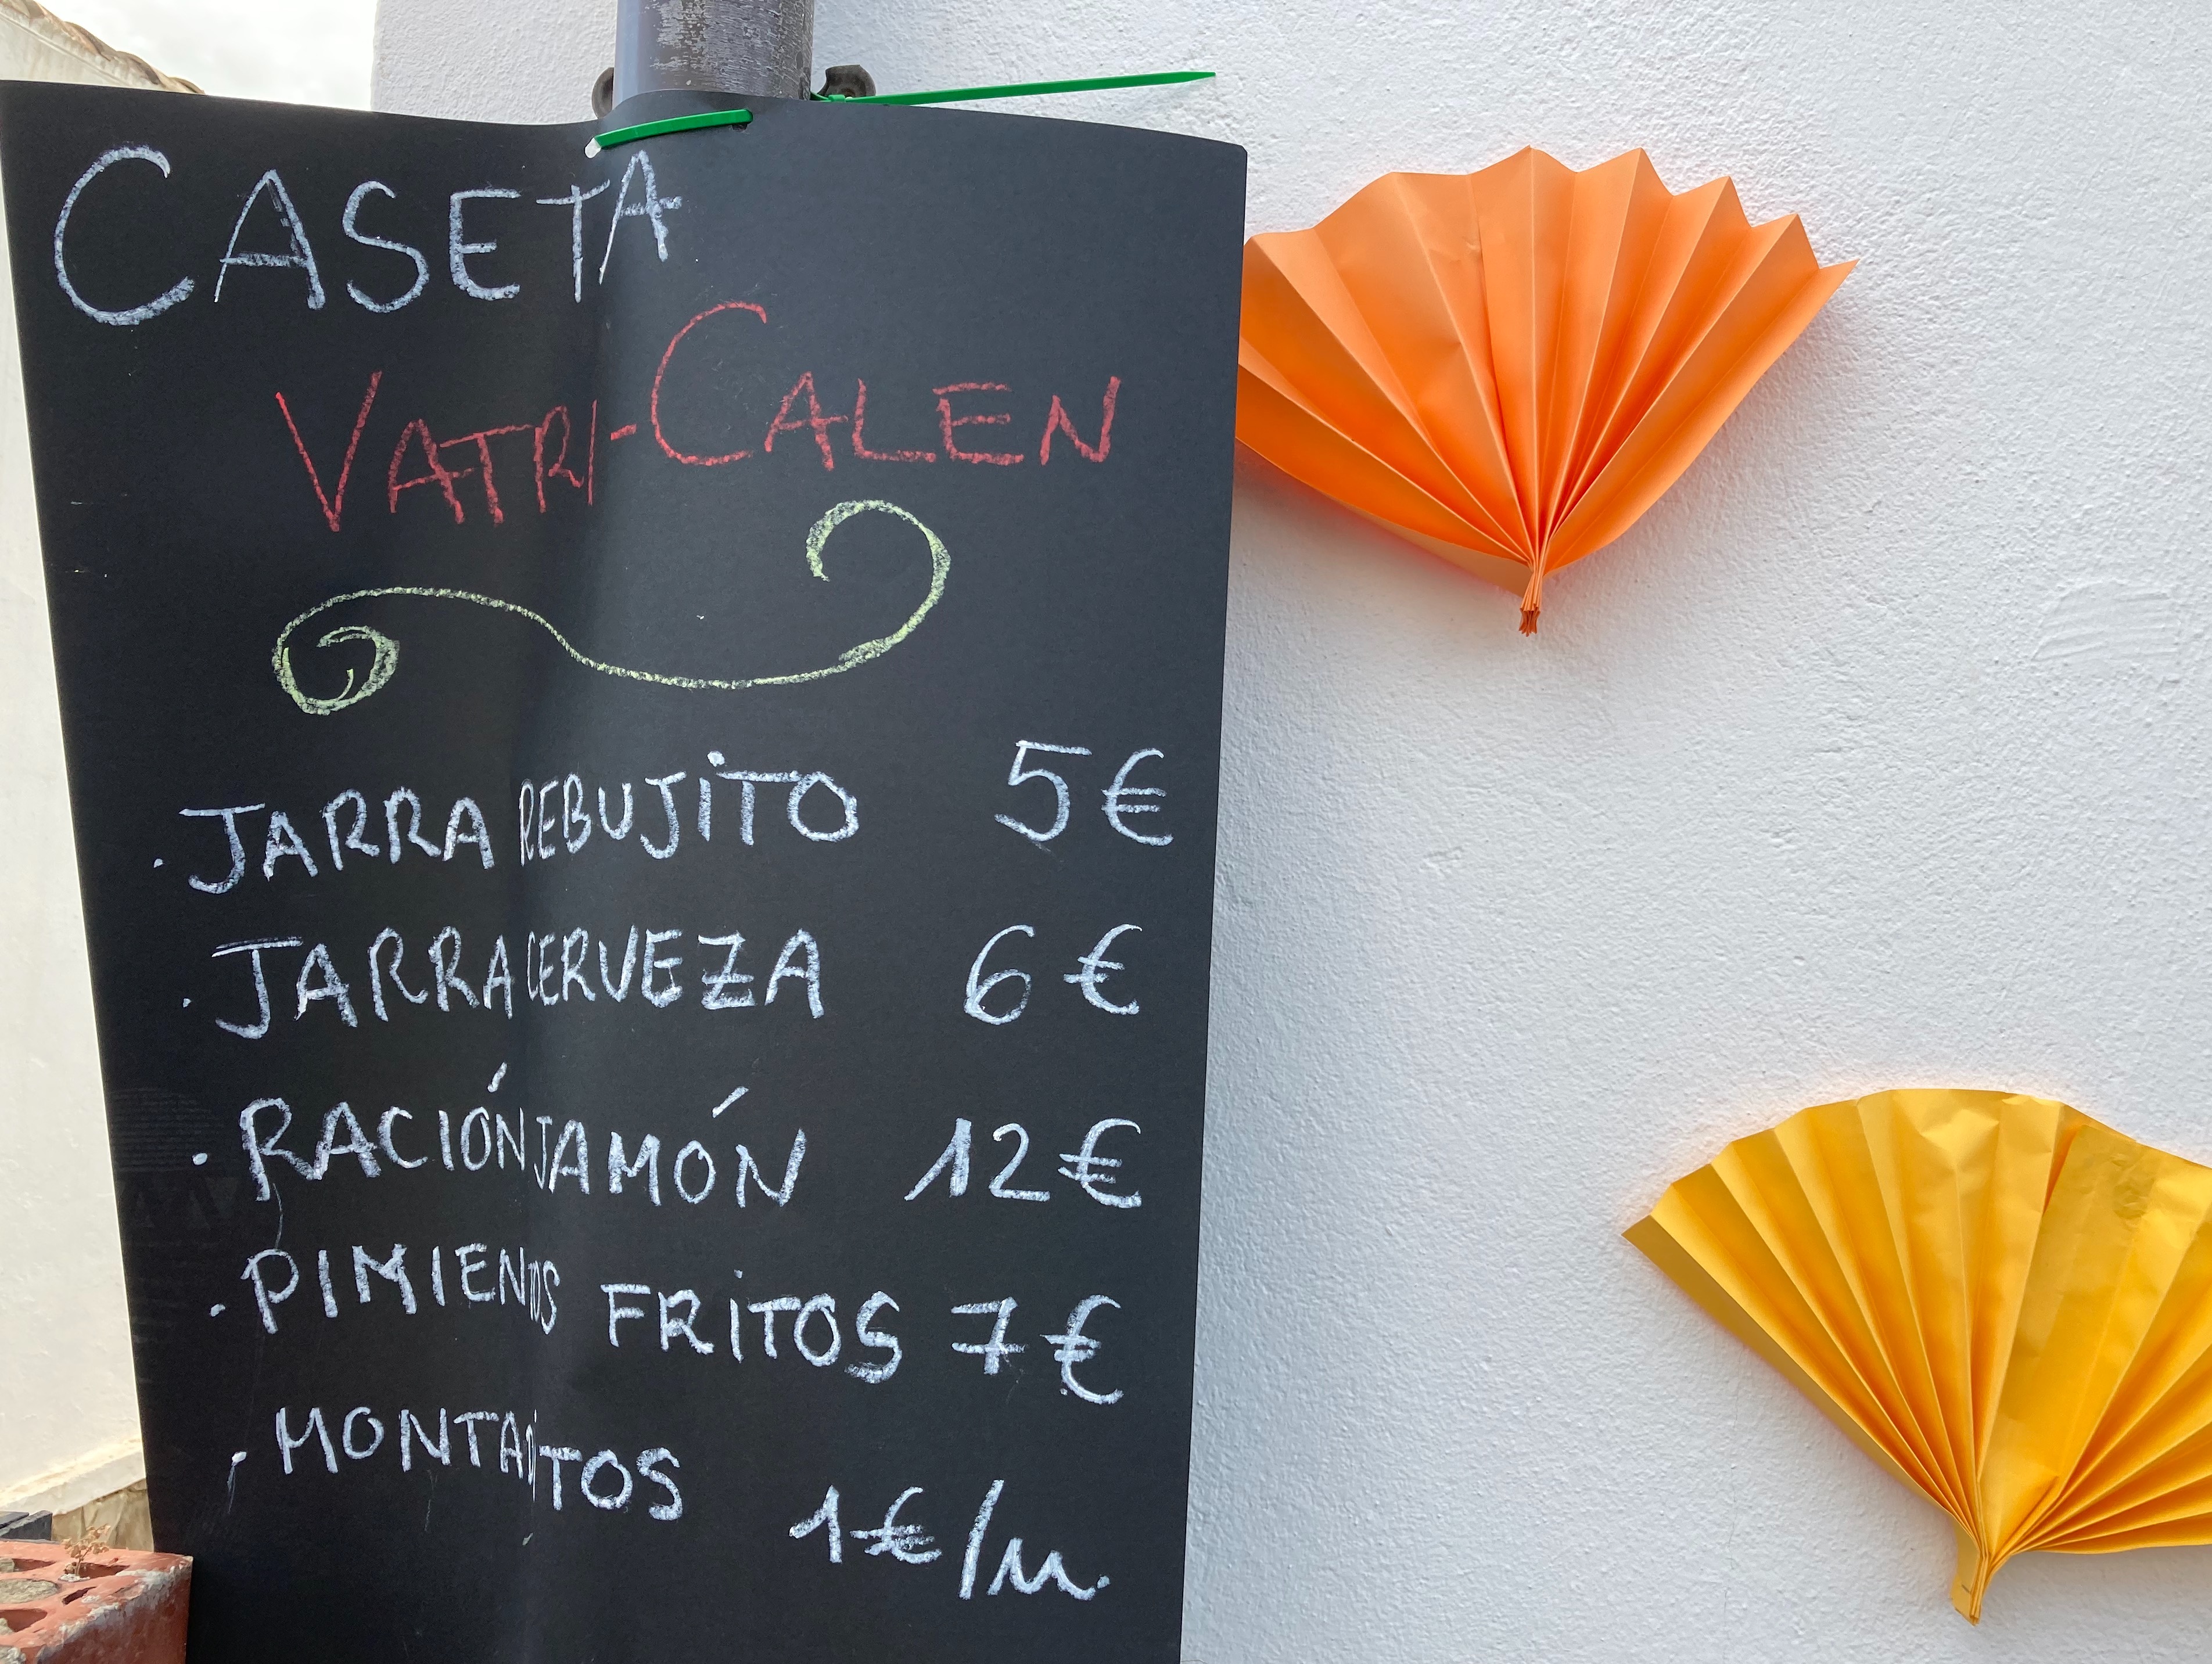 CASETA
VATRI-CALEN
. JARRA REBUJITO 5€
. JARRA CERVEZA 6€
. RACIÓN JAMÓN 12€
. PIMIENTOS FRITOS 7€
. MONTADITOS 1€/u.